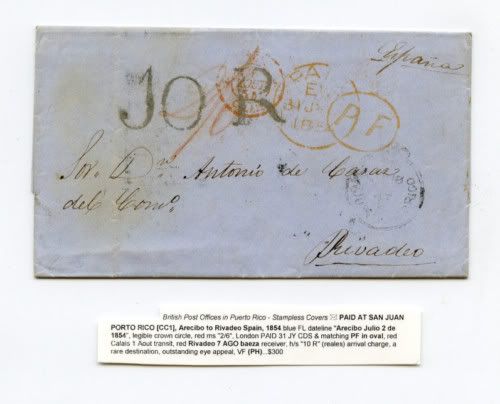 España
10 R
2/6
PF
Sor. Dn. Antonio de Casas
del Como.
Rivadeo
British Post Offices in Puerto Rico - Stampless Covers ✉ PAID AT SAN JUAN
PORTO RICO [CC1], Arecibo to Rivadeo Spain, 1854 blue FL dateline "Arecibo Julio 2 de
1854", legible crown circle, red ms "2/6", London PAID 31 JY CDS & matching PF in oval, red
Calais 1 Aout transit, red Rivadeo 7 AGO baeza receiver, h/s "10 R" (reales) arrival charge, a
rare destination, outstanding eye appeal, VF (PH)...$300